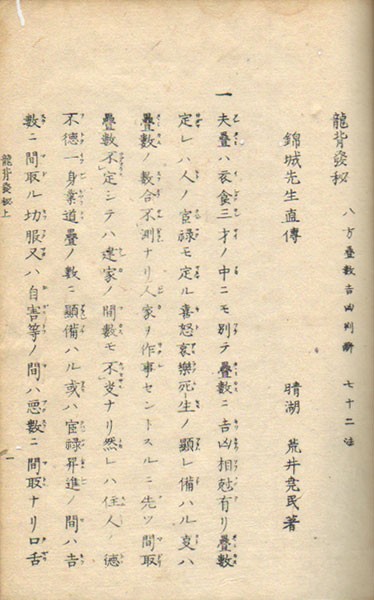 龍背發秘 八方疊數吉凶判断 七十二法
錦城先生直傳 晴湖 荒井堯民著
一
夫疊ハ衣食三才ノ中ニモ別テ疊數ニ吉凶相尅有リ疊數
定レハ人ノ官禄モ定ル喜怒哀樂死生ノ顕レ備ハル叓ハ
疊數ノ數合不測ナリ人家ヲ作事セントスルニ先ツ間取
疊數不定シテハ建家ノ間數モ不叓ナリ然レハ住人ノ德
不德一身業道疊ノ數ニ顕備ハル或ハ官禄昇進ノ間ハ吉
數ニ間取ル切服又ハ自害等ノ間ハ悪數ニ間取ナリロ舌
龍背發秘上 一